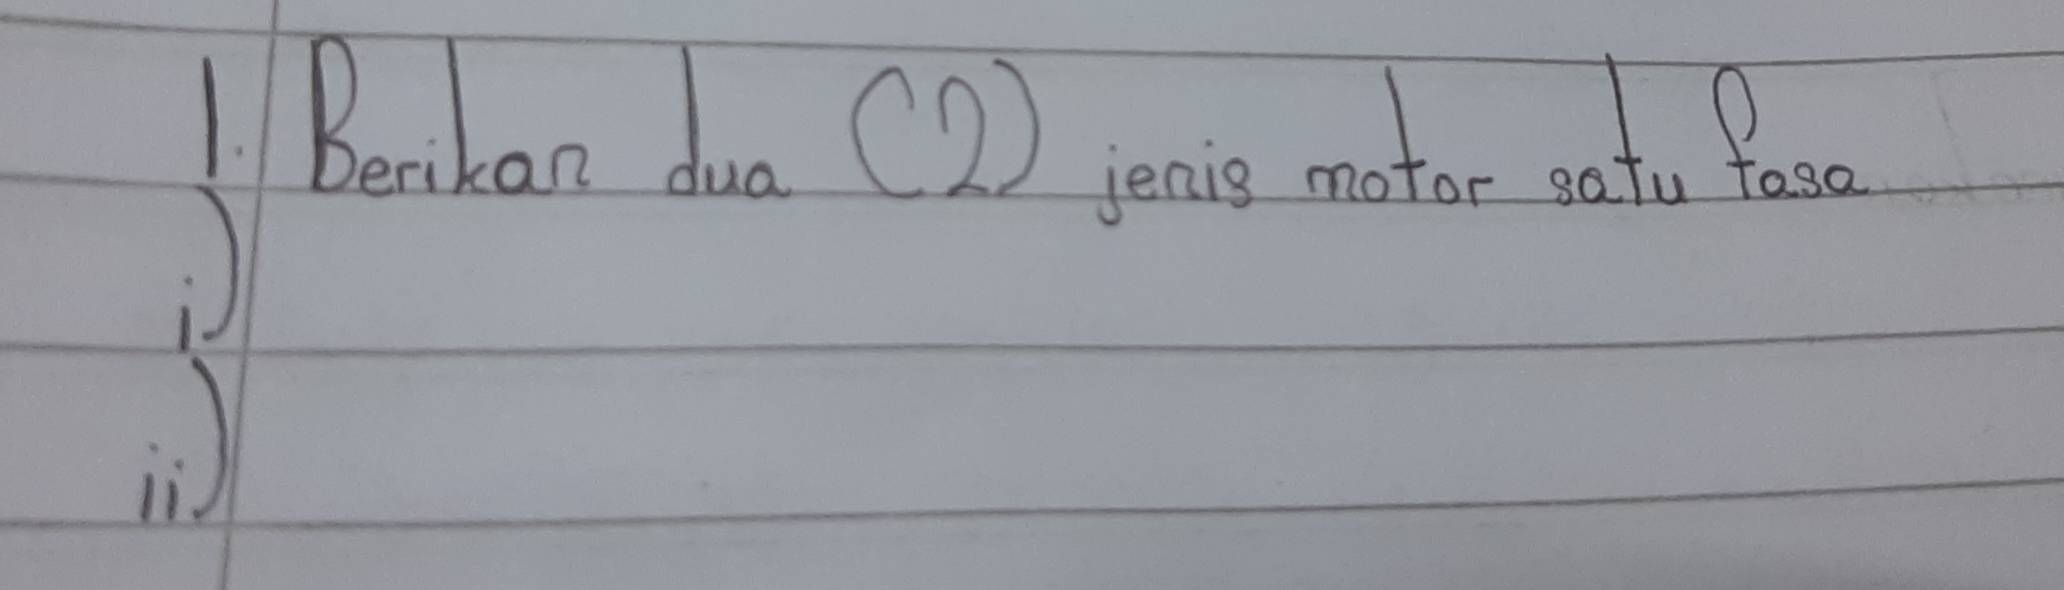 1. Berikan dua (2) jenis motor satu fasa
i)
ii)